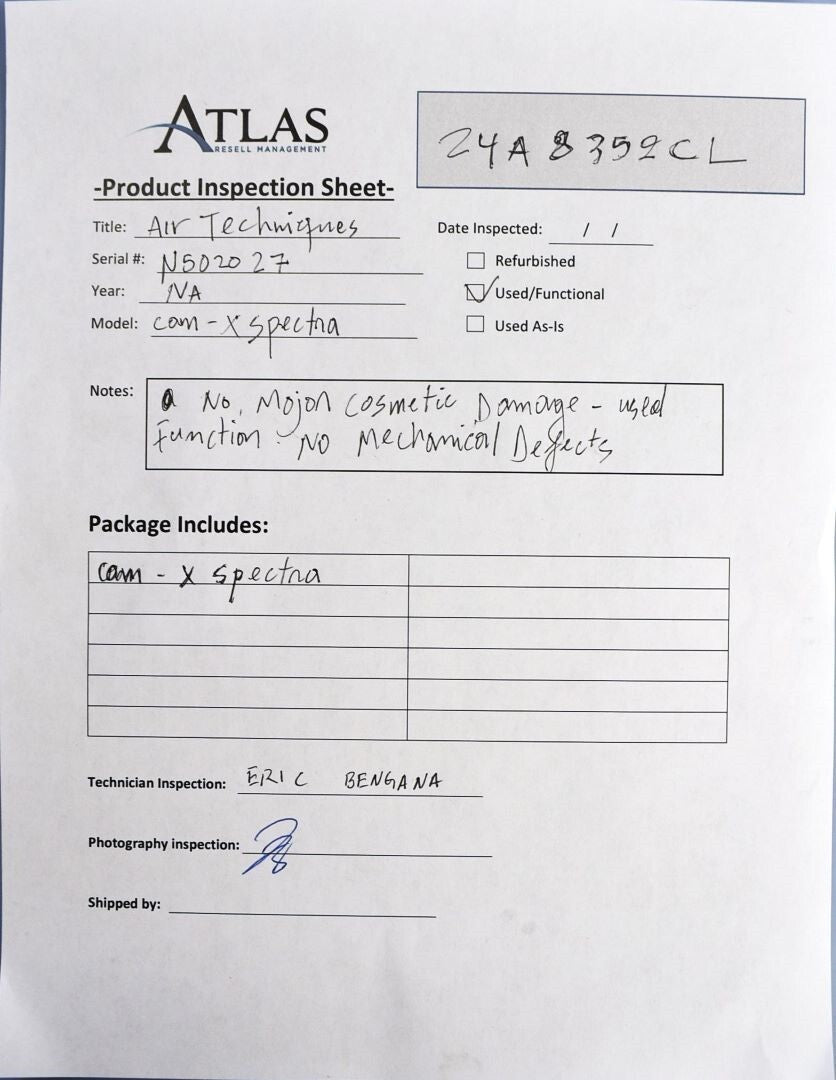 ATLAS
RESELL MANAGEMENT
24A8352CL
-Product Inspection Sheet-
Title: Air Techniques
Date Inspected: / /
Serial #: N502027
Refurbished
Year: NA
Used/Functional
Model: cam-X spectra
Used As-Is
Notes: No, Major Cosmetic Damage - used
Function - No Mechanical Defects
Package Includes:
cam - X spectra
Technician Inspection: ERIC BENGANA
Photography inspection:
Shipped by: